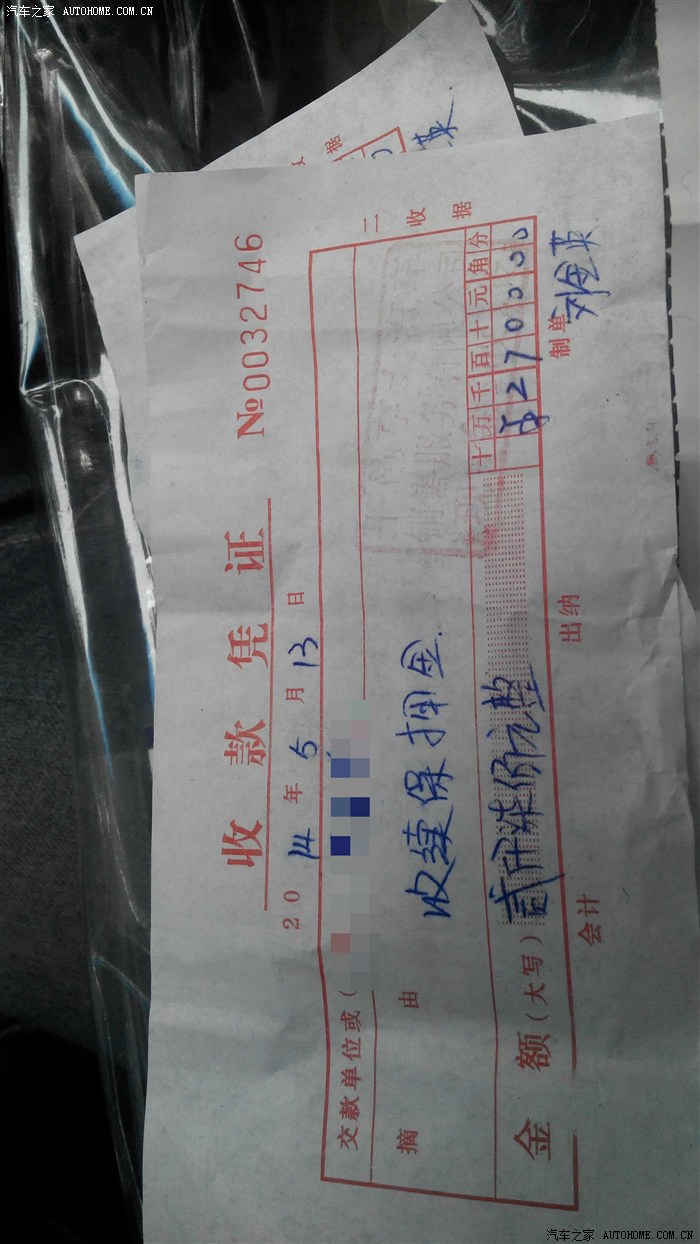 汽车之家 AUTOHOME.COM.CN
收款凭证
№0032746
2014年5月13日
二 收据
交款单位或(
摘由
收续保押金.
金额(大写)
贰仟柒佰元整
十万千百十元角分
¥270000
会计
出纳
制单
刘金英
据
英
汽车之家 AUTOHOME.COM.CN